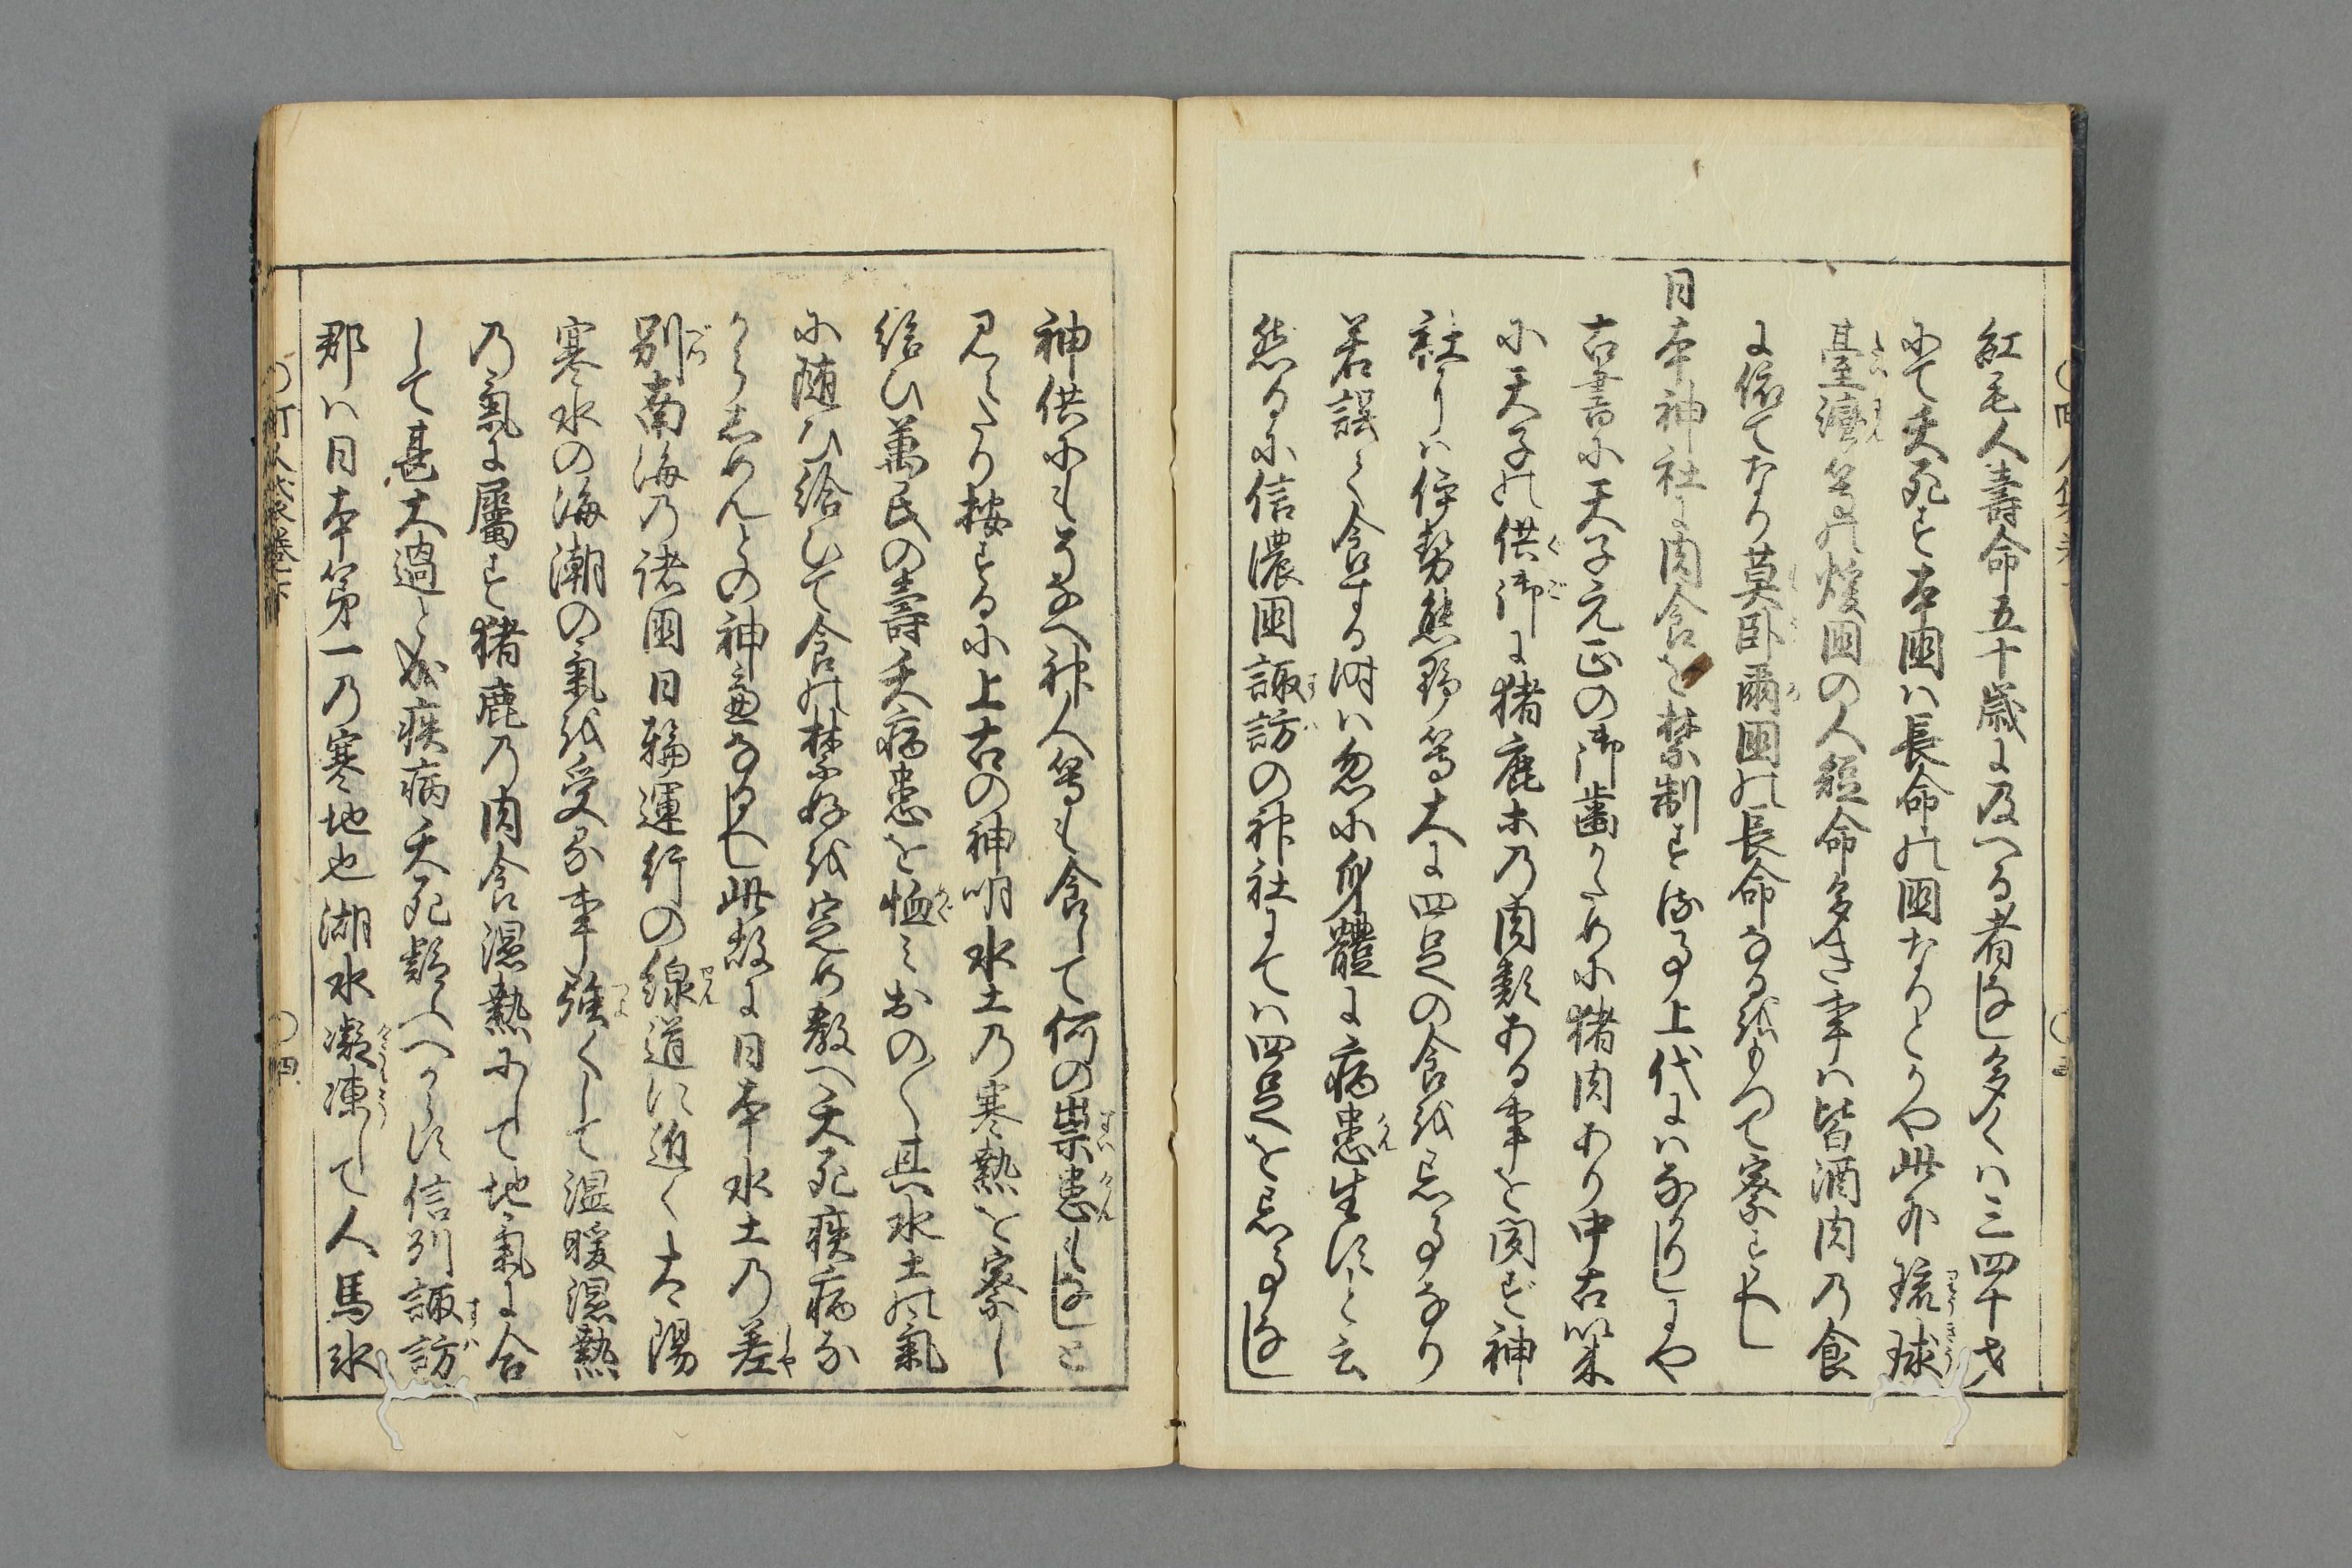 紅毛人壽命五十歳に及へる者なし多くハ三四十才
にて夭死す本国ハ長命の国なりとかや此外琉球
臺灣等の煖国の人短命多き事ハ皆酒肉乃食
に依てなり莫臥爾国の長命なるをもつて察すへし
日本神社に肉食を禁制する事上代にハなかりしにや
古書に天子元正の御歯かために猪肉あり中古以来
に天子の供御に猪鹿の肉類ある事を聞ず神
社にハ伊勢熊野等大に四足の食を忌事なり
若誤て食する時ハ忽に身體に病患生すと云
然るに信濃国諏訪の神社にてハ四足を忌事なし
神供にもそなへ神人等も食して何の祟患もなしと
見へたり按するに上古の神明水土乃寒熱を察し
給ひ萬民の壽夭病患を恤ミおの〱其水土の氣
に随ひ給ひて食の禁好を定め教へ夭死疾病な
からしめんとの神慮なるへし此故に日本水土乃差
別南海乃諸国日輪運行の線道に近く大陽
寒水の海潮の氣を受る事強くして温暖濕熱
乃氣に屬す猪鹿乃肉食濕熱にして地氣に合
して甚大過と成疾病夭死類へからす信列諏訪
郡ハ日本第一乃寒地也湖水凝凍して人馬氷
町人囊巻下
四